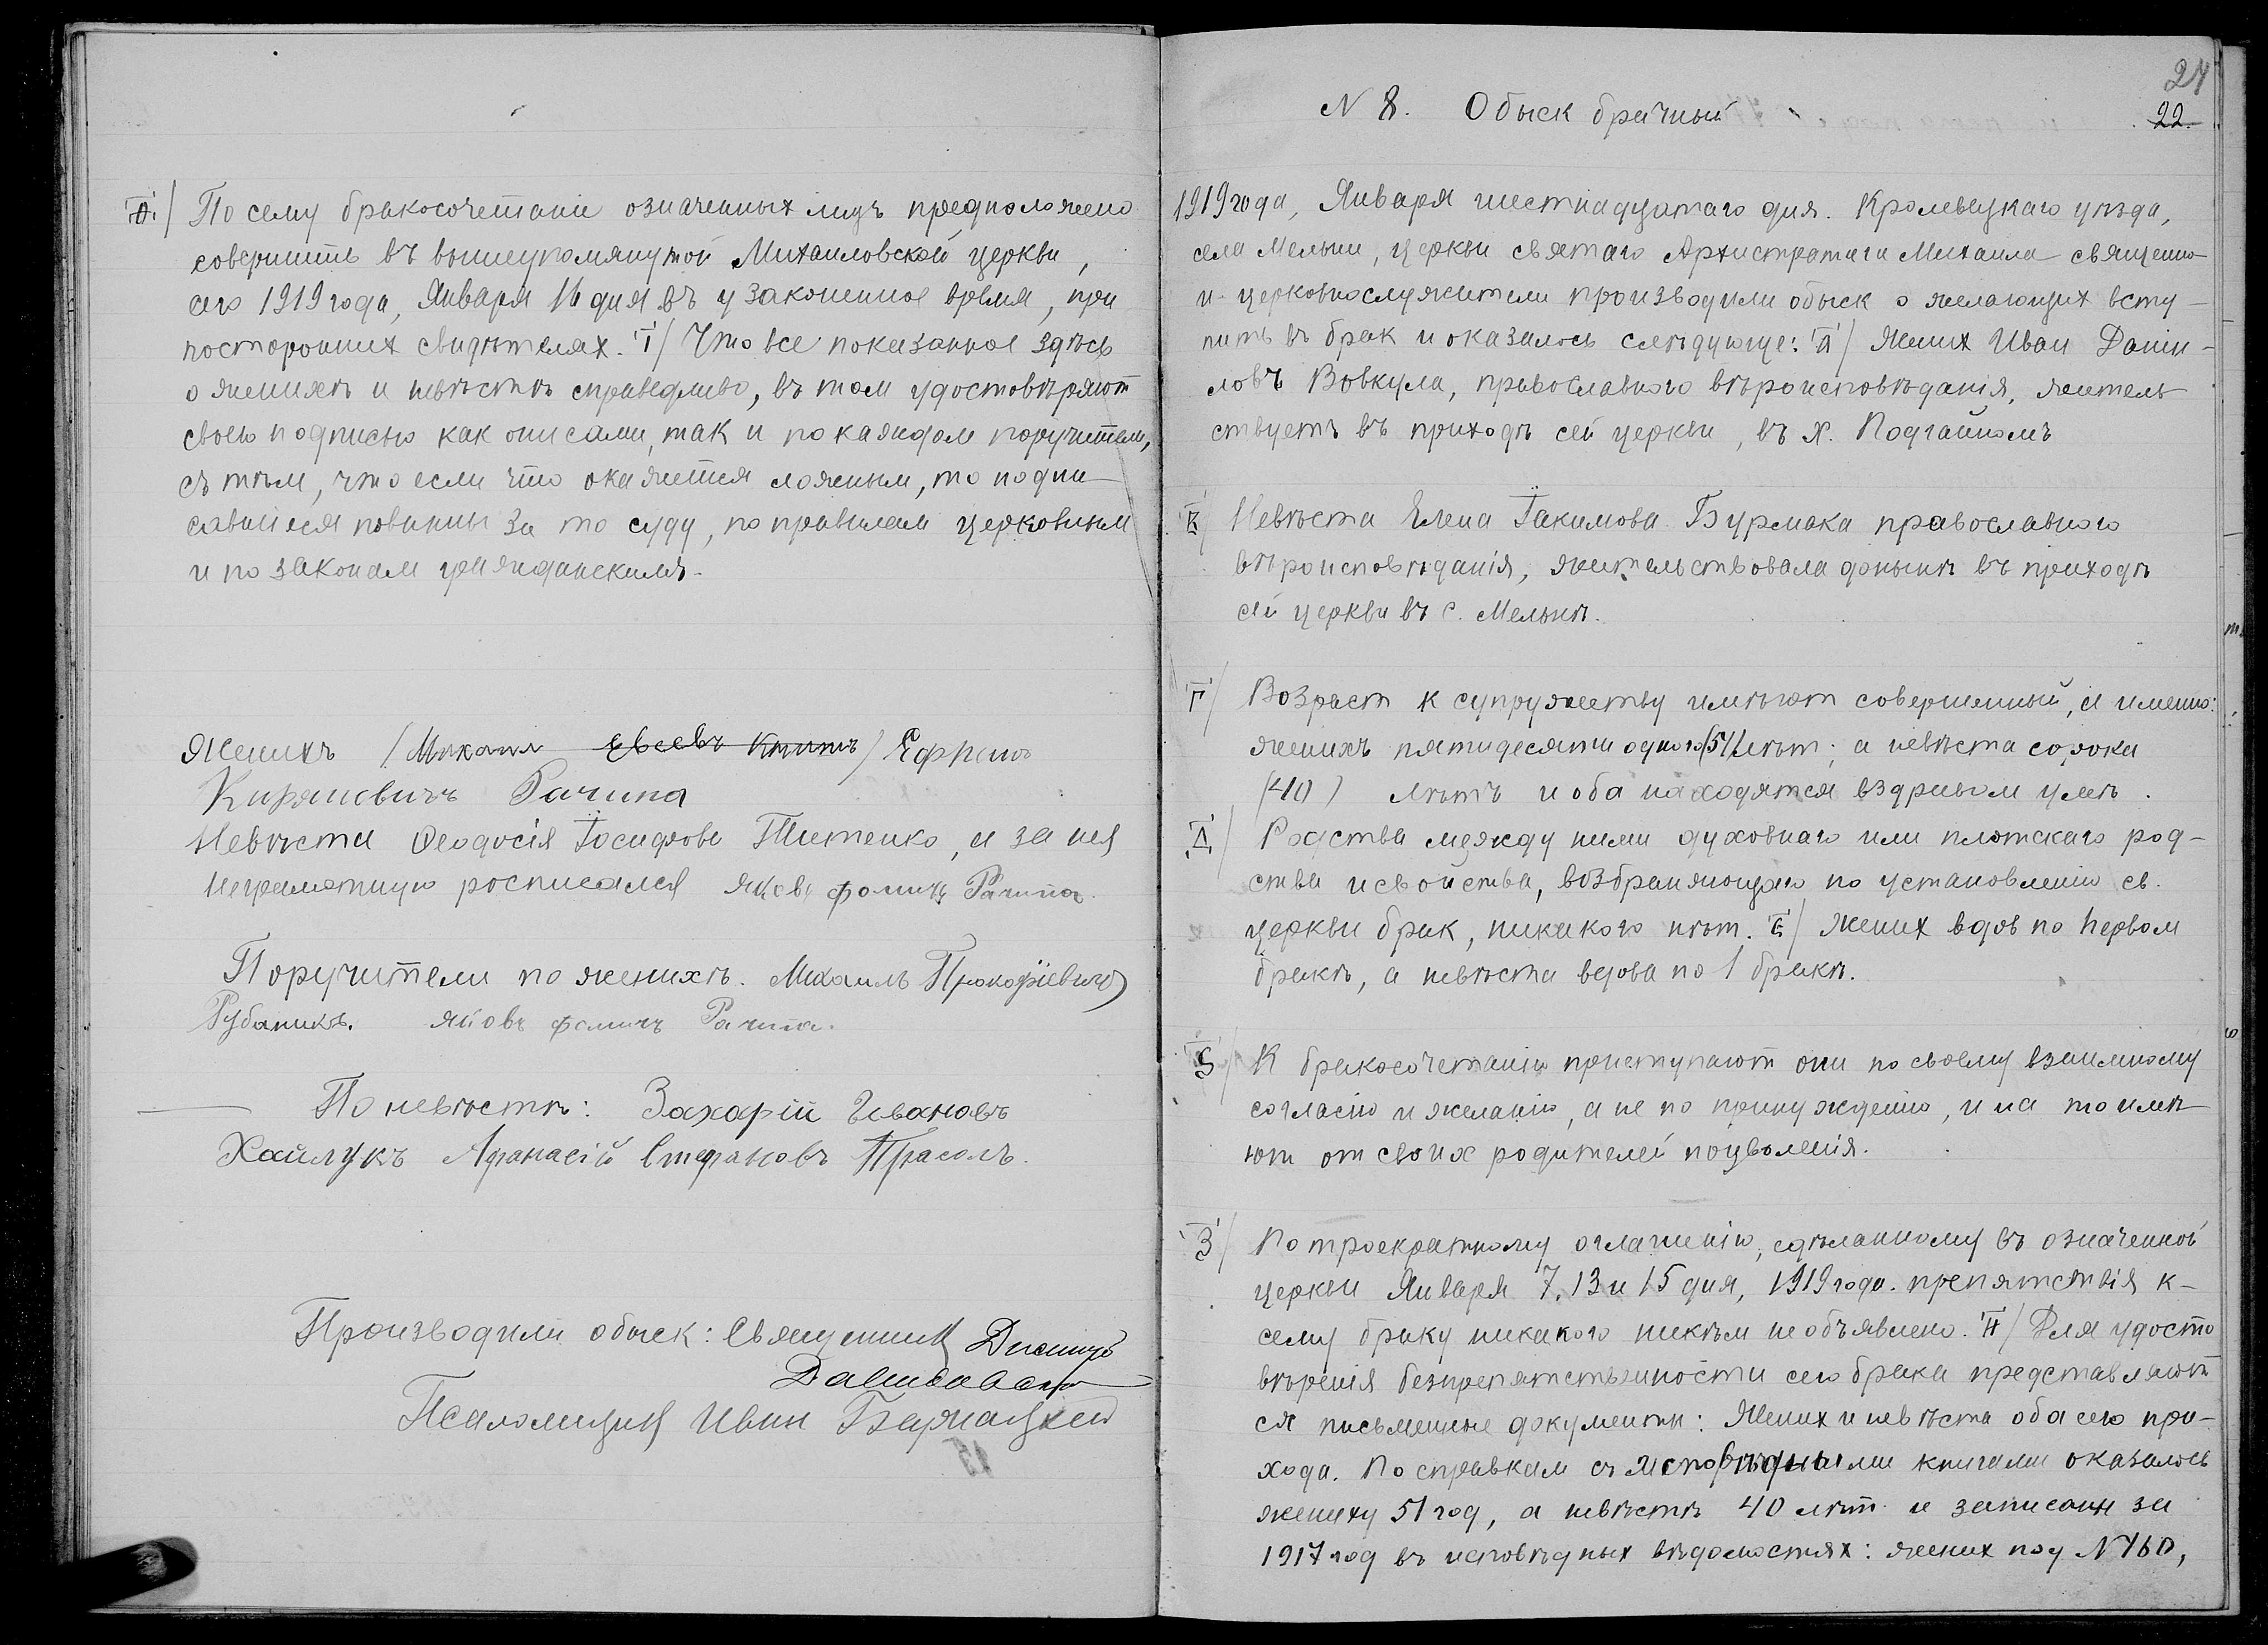 Ѳ/ По сему бракосочетаніе означенныхъ лицъ предположено
совершить въ вышеупомянутой Михаиловской церкви,
сего 1919 года, Января 16 дня въ узаконенное время, при
посторонних свидѣтелях. І/ Что все показанное здѣсь
о женихѣ и невѣстѣ справедливо, въ том удостовѣряют
своею подписью как они сами, так и по каждом поручители,
съ тѣм, что если что окажется ложным, то подпи-
савшіеся повинны за то суду, по правилам церковным
и по законам гражданскимъ.
Женихъ (Михаил Евсеевъ) Ефремъ
Невѣста Феодосія Іосифова Титенко, а за нея
неграмотную росписался Яковъ Фомичъ Рачипа.
Поручители по женихѣ. Михаилъ Прокофіевичъ
Рубаникъ. Яковъ Фомичъ Рачипа.
По невѣстѣ: Захарій Ивановъ
Хайлукъ Афанасій Стефановъ Прасолъ.
Производили обыск: Священник
Псаломщик Иван
24
22.
N 8. Обыск брачный
1919 года, Января шестнадцатаго дня. Кролевецкаго уѣзда,
села Мельни, церкви святаго Архистратига Михаила священно
и церковнослужители производили обыск о желающих всту-
пить въ брак и оказалось слѣдующе: А/ Жених Иван Даніи-
ловъ Вовкула, православного вѣроисповѣданія, житель
ствуетъ въ приходѣ сей церкви, въ х. Подгайномъ
В/ Невѣста Елена Іакимова Бурмака православного
вѣроисповѣданія, жительствовала донынѣ въ приходѣ
сей церкви въ с. Мельнѣ.
Г/ Возраст к супружеству имѣют совершенный, а именно:
женихъ пятидесяти одного (51) лѣт; а невѣста сорока
(40) лѣтъ и оба находятся вздравом умѣ.
Д/ Родства между ними духовнаго или плотскаго род-
ства и свойства, возбраняющаго по установленію св.
церкви брак, никакого нѣт. Е/ Жених вдов по первом
бракѣ, а невѣста вдова по 1 бракѣ.
Ѕ/ К бракосочетанію приступают они по своему взаимному
согласію и желанію, а не по принужденію, и на то имѣ-
ют от своих родителей позволенія.
З/ По троекратному оглашенію, сдѣланному въ означенной
церкви Января 7, 13 и 15 дня, 1919 года. препятствія к-
сему браку никакого никѣм не объявлено. И/ Для удосто
вѣренія безпрепятственности сего брака представляют
ся письменные документы: Жених и невѣста оба сего при-
хода. По справкам съ исповѣдными книгами оказалось
жениху 51 год, а невѣстѣ 40 лѣт и записаны за
1917 год въ исповѣдных вѣдомостях: жених под N 460,